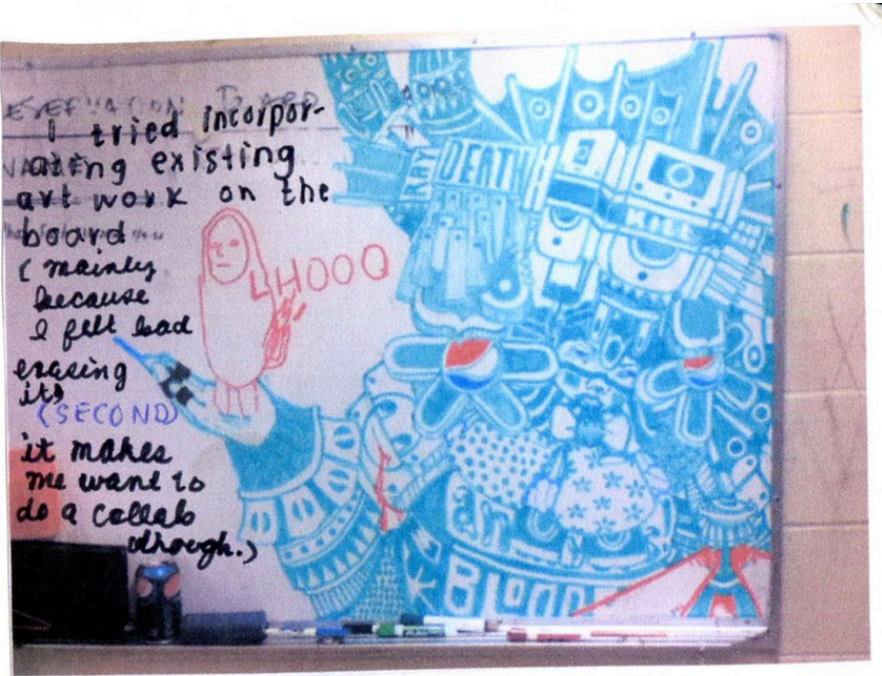 I tried incorpor-
ating existing
art work on the
board
(mainly
because
I felt bad
erasing
it)
(SECOND)
it makes
me want to
do a collab
though.)
LHOOQ
RAY
DEATH
KILL
EST.
BLOOD